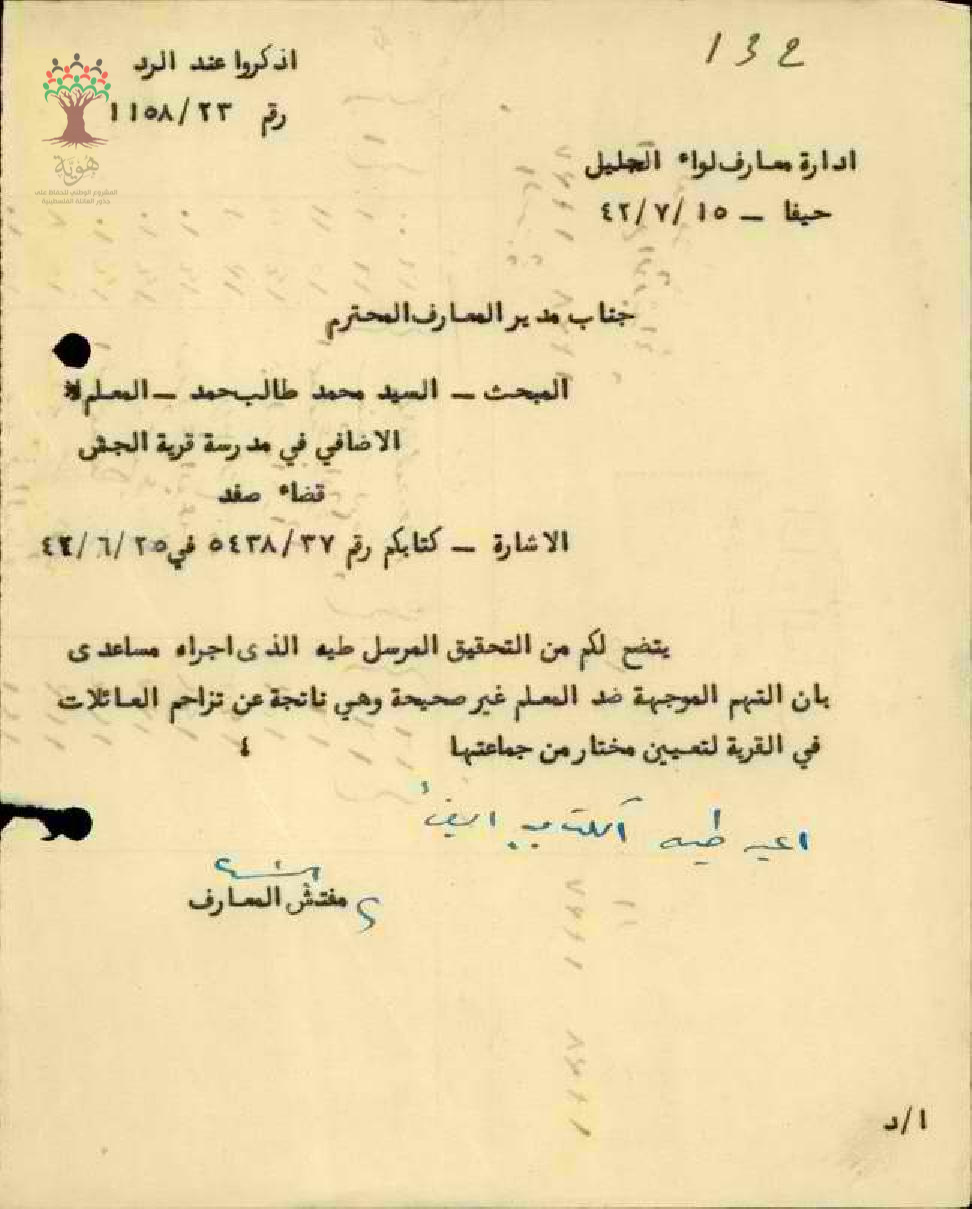 132
اذكروا عند الرد
رقم ١١٥٨/٢٣
هُوِيَّة
المشروع الوطني للحفاظ على
جذور العائلة الفلسطينية
ادارة معارف لواء الجليل
حيفا – ٤٢/٧/١٥
جناب مدير المعارف المحترم
المبحث – السيد محمد طالب حمد – المعلم
الاضافي في مدرسة قرية الجش
قضاء صفد
الاشارة – كتابكم رقم ٥٤٣٨/٣٧ في ٤٢/٦/٢٥
يتضح لكم من التحقيق المرسل طيه الذى اجراه مساعدى
بان التهم الموجهة ضد المعلم غير صحيحة وهي ناتجة عن تزاحم العائلات
في القرية لتعيين مختار من جماعتها ٤
طيه
مفتش المعارف
ا/د